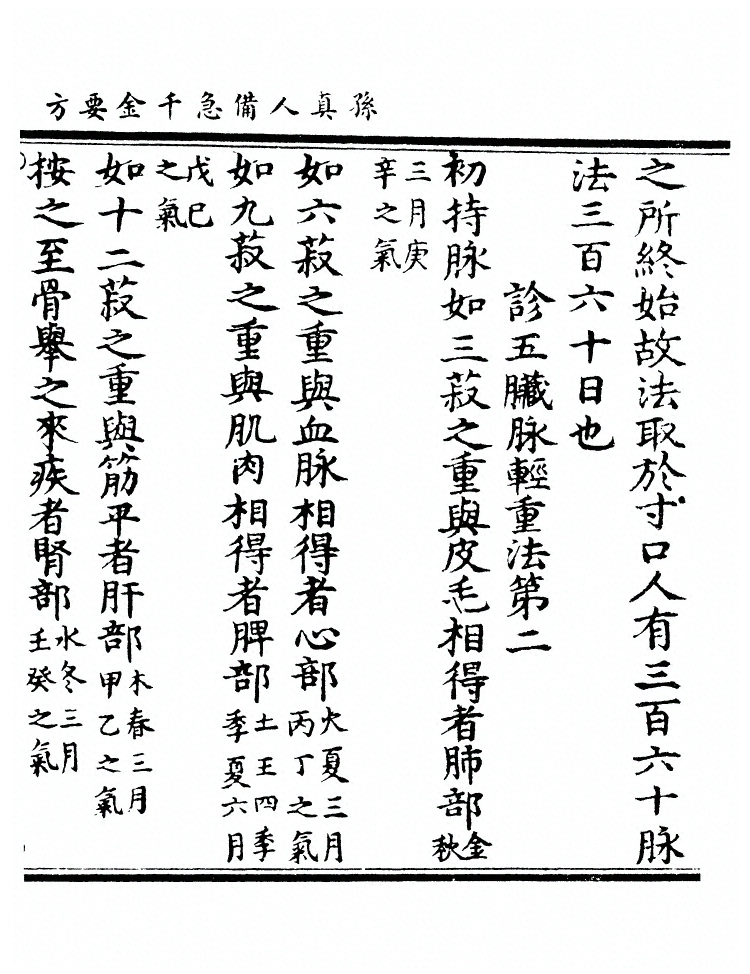 孫真人備急千金要方
之所終始故法取於寸口人有三百六十脉
法三百六十日也
診五臟脉輕重法第二
初持脉如三菽之重與皮毛相得者肺部金秋
三月庚
辛之氣
如六菽之重與血脉相得者心部火夏三月丙丁之氣
如九菽之重與肌肉相得者脾部土王四季季夏六月
戊巳
之氣
如十二菽之重與筋平者肝部木春三月甲乙之氣
桉之至骨舉之來疾者腎部水冬三月壬癸之氣